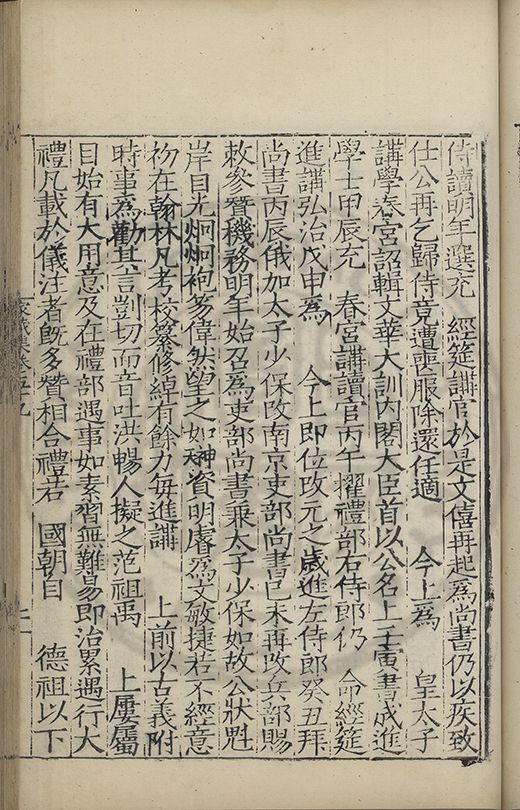 侍讀明年選充　經筵講官於是文僖再起為尚書仍以疾致
仕公再乞歸侍竟遭喪服除還任適　今上為　皇太子
講學春宮詔輯文華大訓內閣大臣首以公名上壬寅書成進
學士甲辰充　春宮講讀官丙午擢禮部右侍郎仍　命經筵
進講弘治戊申為　今上即位改元之歲進左侍郎癸丑拜
尚書丙辰俄加太子少保改南京吏部尚書己未再改兵部賜
敕參贊機務明年始召為吏部尚書兼太子少保如故公狀魁
岸目光炯炯袍笏偉然望之如神天資明睿為文敏捷若不經意
初在翰林凡考校纂修綽有餘力每進講　上前以古義附
時事為勸其言剴切而音吐洪暢人擬之范祖禹　上屢屬
目始有大用意及在禮部遇事如素習無難易即治累遇行大
禮凡載於儀注者旣多贊相合禮若　國朝自　德祖以下